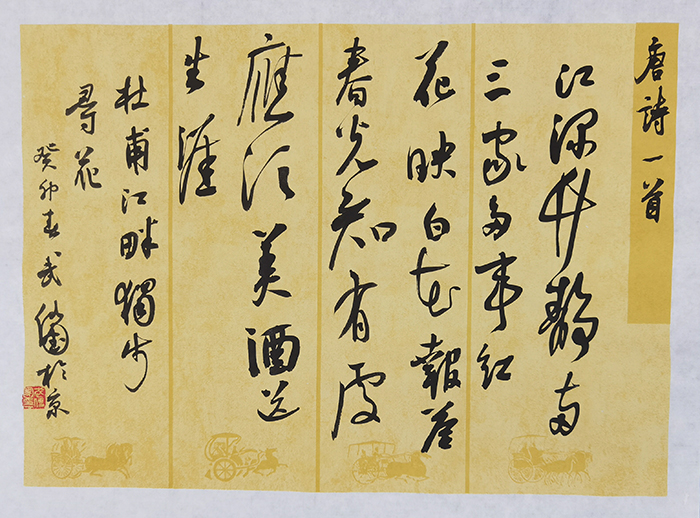 唐詩一首
江深竹靜兩
三家多事紅
花映白花報答
春光知有處
應須美酒送
生涯
杜甫江畔獨步
尋花
癸卯春武於京